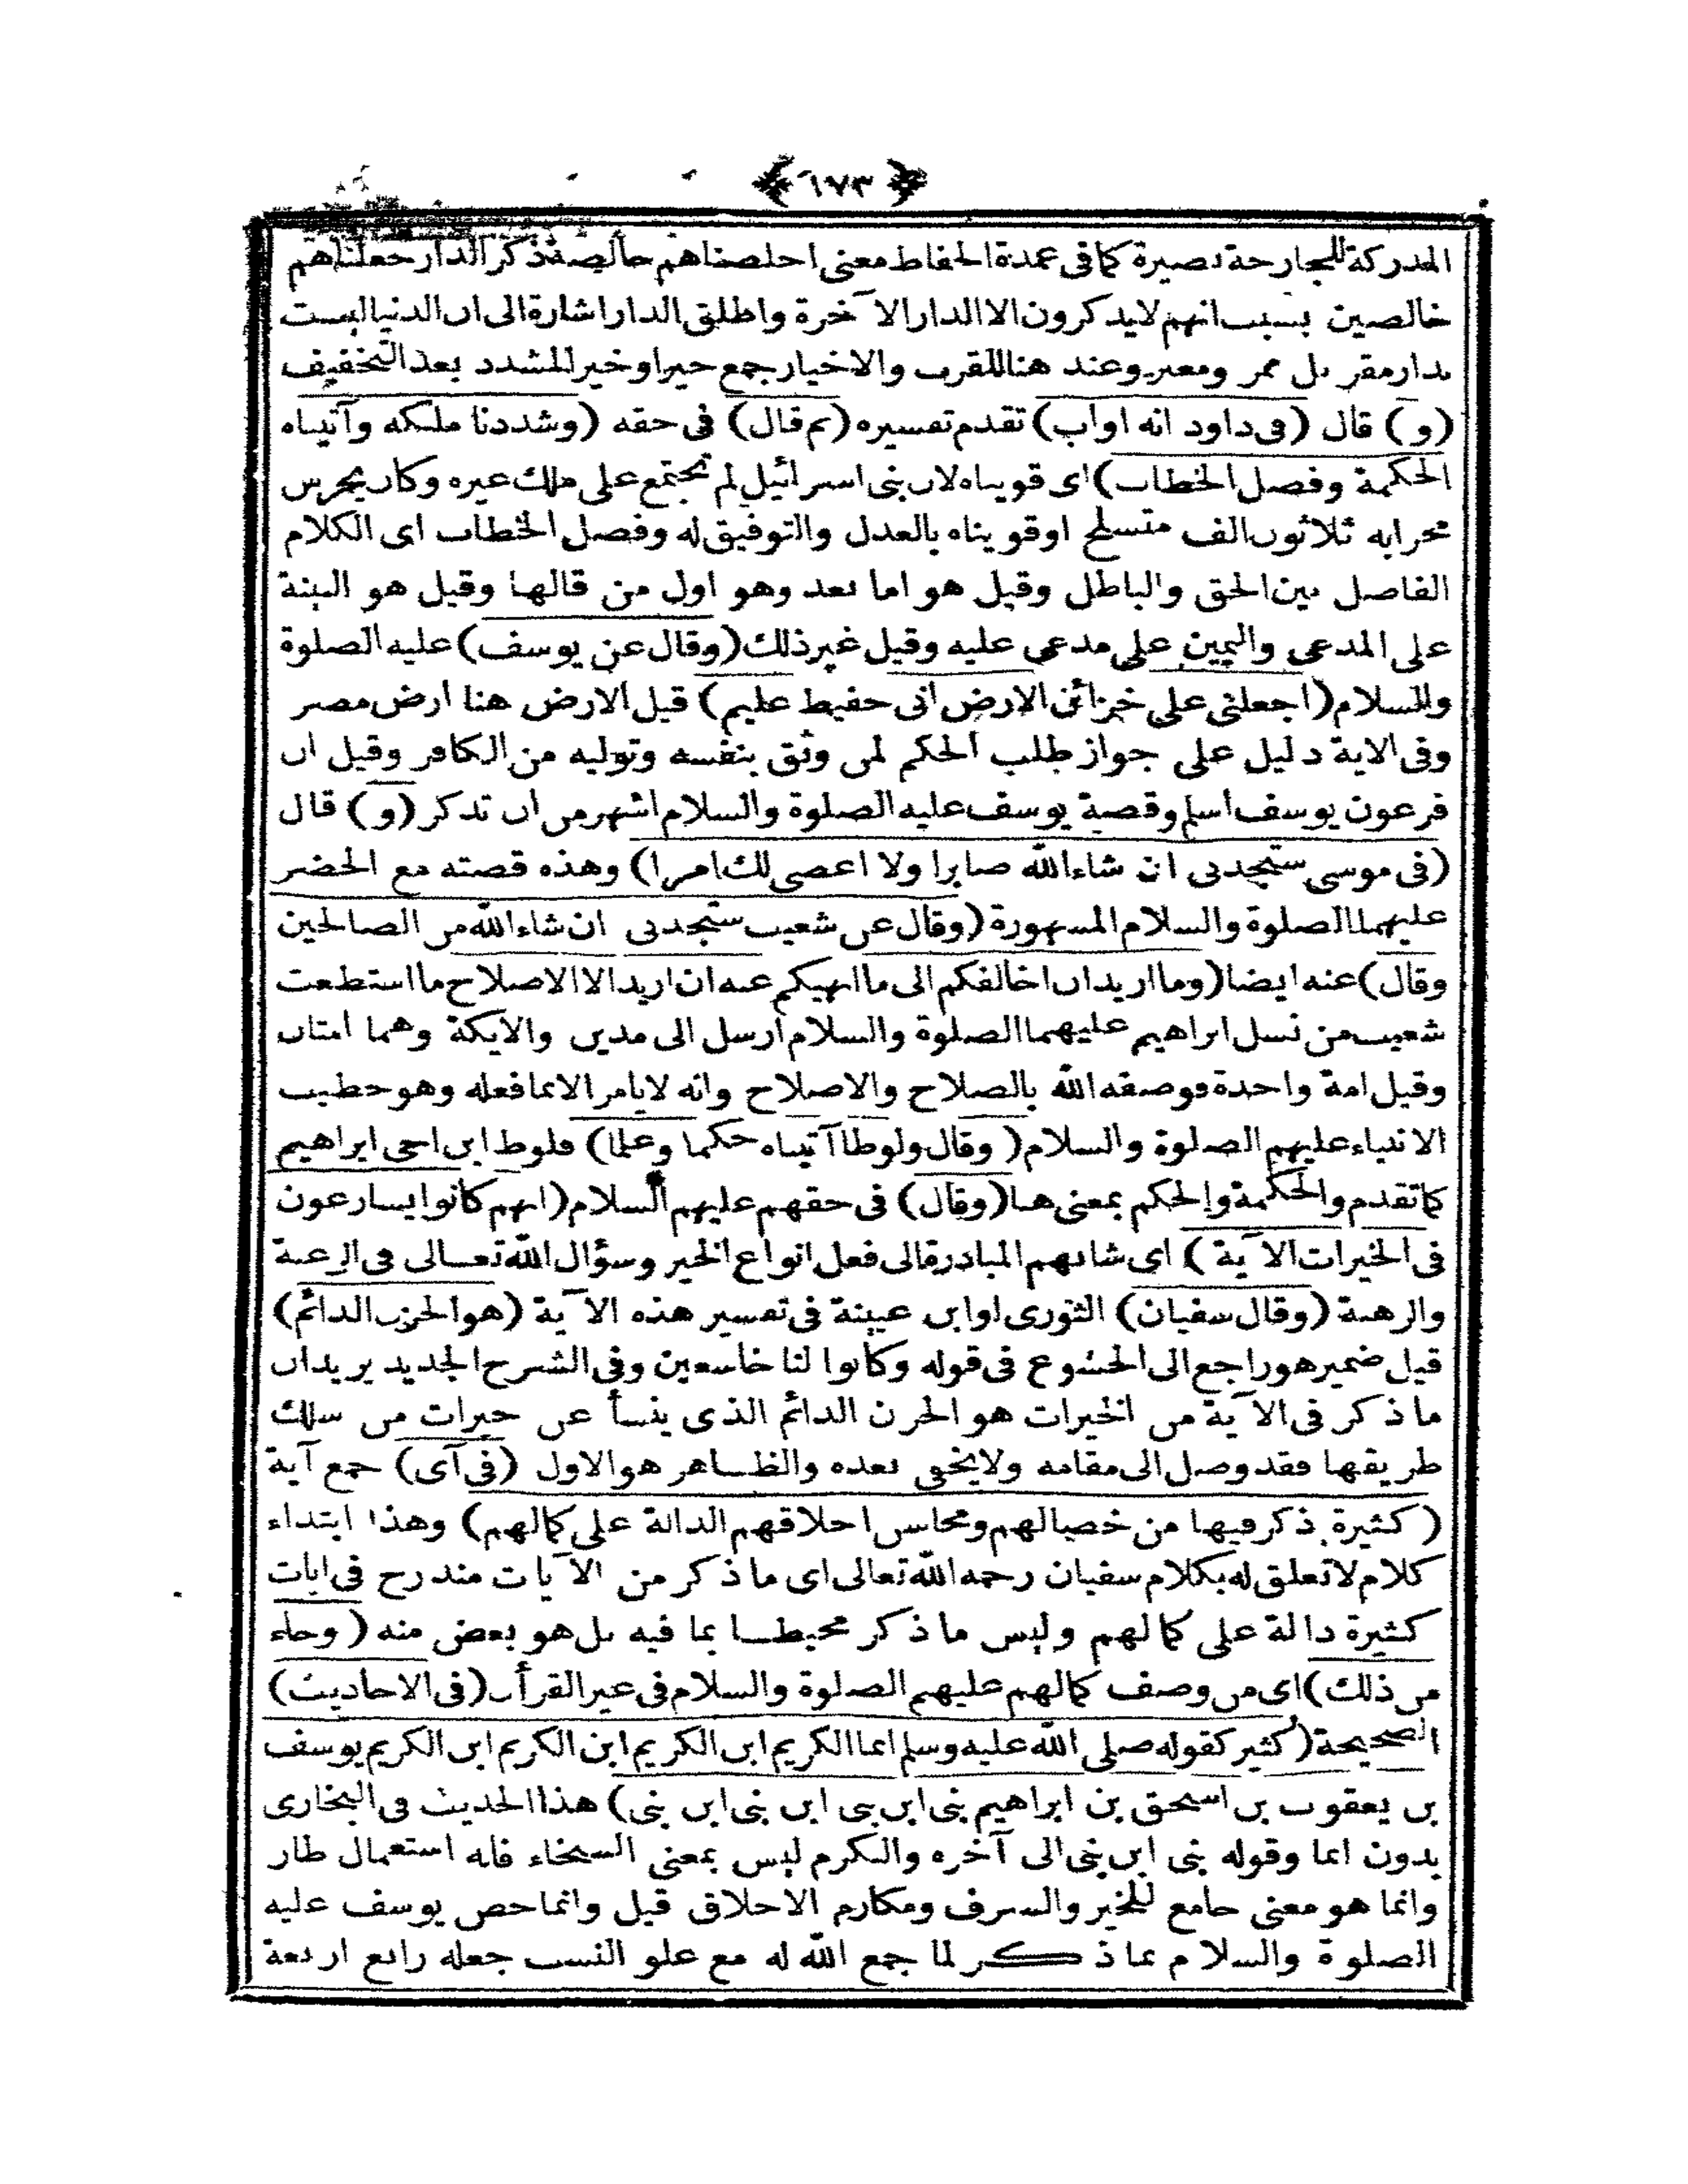 ﴿ ١٧٣ ﴾
المدركة للجارحة بصيرة كما فى عمدة الحفاظ معنى اخلصناهم بخالصة ذكر الدار جعلناهم
خالصين بسبب انهم لايذكرون الا الدار الآخرة واطلق الدار اشارة الى ان الدنيا ليست
بدار مقر بل ممر ومعبر وعند هنا للقرب والاخيار جمع خير او خير المشدد بعد التخفيف
(و) قال (فى داود انه اواب) تقدم تفسيره (ثم قال) فى حقه (وشددنا ملكه وآتيناه
الحكمة وفصل الخطاب) اى قويناه لان بنى اسرائيل لم تجتمع على ملك غيره وكان يحرس
محرابه ثلاثون الف متسلح او قويناه بالعدل والتوفيق له وفصل الخطاب اى الكلام
الفاصل بين الحق والباطل وقيل هو اما بعد وهو اول من قالها وقيل هو البينة
على المدعى واليمين على مدعى عليه وقيل غير ذلك (وقال عن يوسف) عليه الصلوة
والسلام (اجعلنى على خزائن الارض انى حفيظ عليم) قيل الارض هنا ارض مصر
وفى الاية دليل على جواز طلب الحكم لمن وثق بنفسه وتوليه من الكافر وقيل ان
فرعون يوسف اسلم وقصة يوسف عليه الصلوة والسلام اشهر من ان تذكر (و) قال
(فى موسى ستجدنى ان شاء الله صابرا ولا اعصى لك امرا) وهذه قصته مع الخضر
عليهما الصلوة والسلام المشهورة (وقال عن شعيب ستجدنى ان شاء الله من الصالحين
وقال) عنه ايضا (وما اريد ان اخالفكم الى ما انهيكم عنه ان اريد الا الاصلاح ما استطعت
شعيب من نسل ابراهيم عليهما الصلوة والسلام ارسل الى مدين والايكة وهما امتان
وقيل امة واحدة فوصفه الله بالصلاح والاصلاح وانه لايامر الا بما فعله وهو خطيب
الانبياء عليهم الصلوة والسلام (وقال ولوطا آتيناه حكما وعلما) فلوط ابن اخى ابراهيم
كما تقدم والحكمة والحكم بمعنى هنا (وقال) فى حقهم عليهم السلام (انهم كانوا يسارعون
فى الخيرات الآية) اى شانهم المبادرة الى فعل انواع الخير وسؤال الله تعالى فى الرغبة
والرهبة (وقال سفيان) الثورى او ابن عيينة فى تفسير هذه الآية (هو الحزن الدائم)
قيل ضمير هو راجع الى الخشوع فى قوله وكانوا لنا خاشعين وفى الشرح الجديد يريد ان
ما ذكر فى الآية من الخيرات هو الحزن الدائم الذى ينشأ عن خيرات من سلك
طريقها فقد وصل الى مقامه ولايخفى بعده والظاهر هو الاول (فى آى) جمع آية
(كثيرة ذكر فيها من خصالهم ومحاسن اخلاقهم الدالة على كمالهم) وهذا ابتداء
كلام لا تعلق له بكلام سفيان رحمه الله تعالى اى ما ذكر من الآيات مندرج فى ايات
كثيرة دالة على كمالهم وليس ما ذكر محيطا بما فيه بل هو بعض منه (وجاء
من ذلك) اى من وصف كمالهم عليهم الصلوة والسلام فى غير القرأن (فى الاحاديث)
الصحيحة (كثير كقوله صلى الله عليه وسلم انما الكريم ابن الكريم ابن الكريم ابن الكريم يوسف
بن يعقوب بن اسحق بن ابراهيم نبى ابن نبى ابن نبى ابن نبى) هذا الحديث فى البخارى
بدون انما وقوله نبى ابن نبى الى آخره والكرم ليس بمعنى السخاء فانه استعمال طار
وانما هو معنى جامع للخير والشرف ومكارم الاخلاق قيل وانما خص يوسف عليه
الصلوة والسلام بما ذكر لما جمع الله له مع علو النسب جعله رابع اربعة